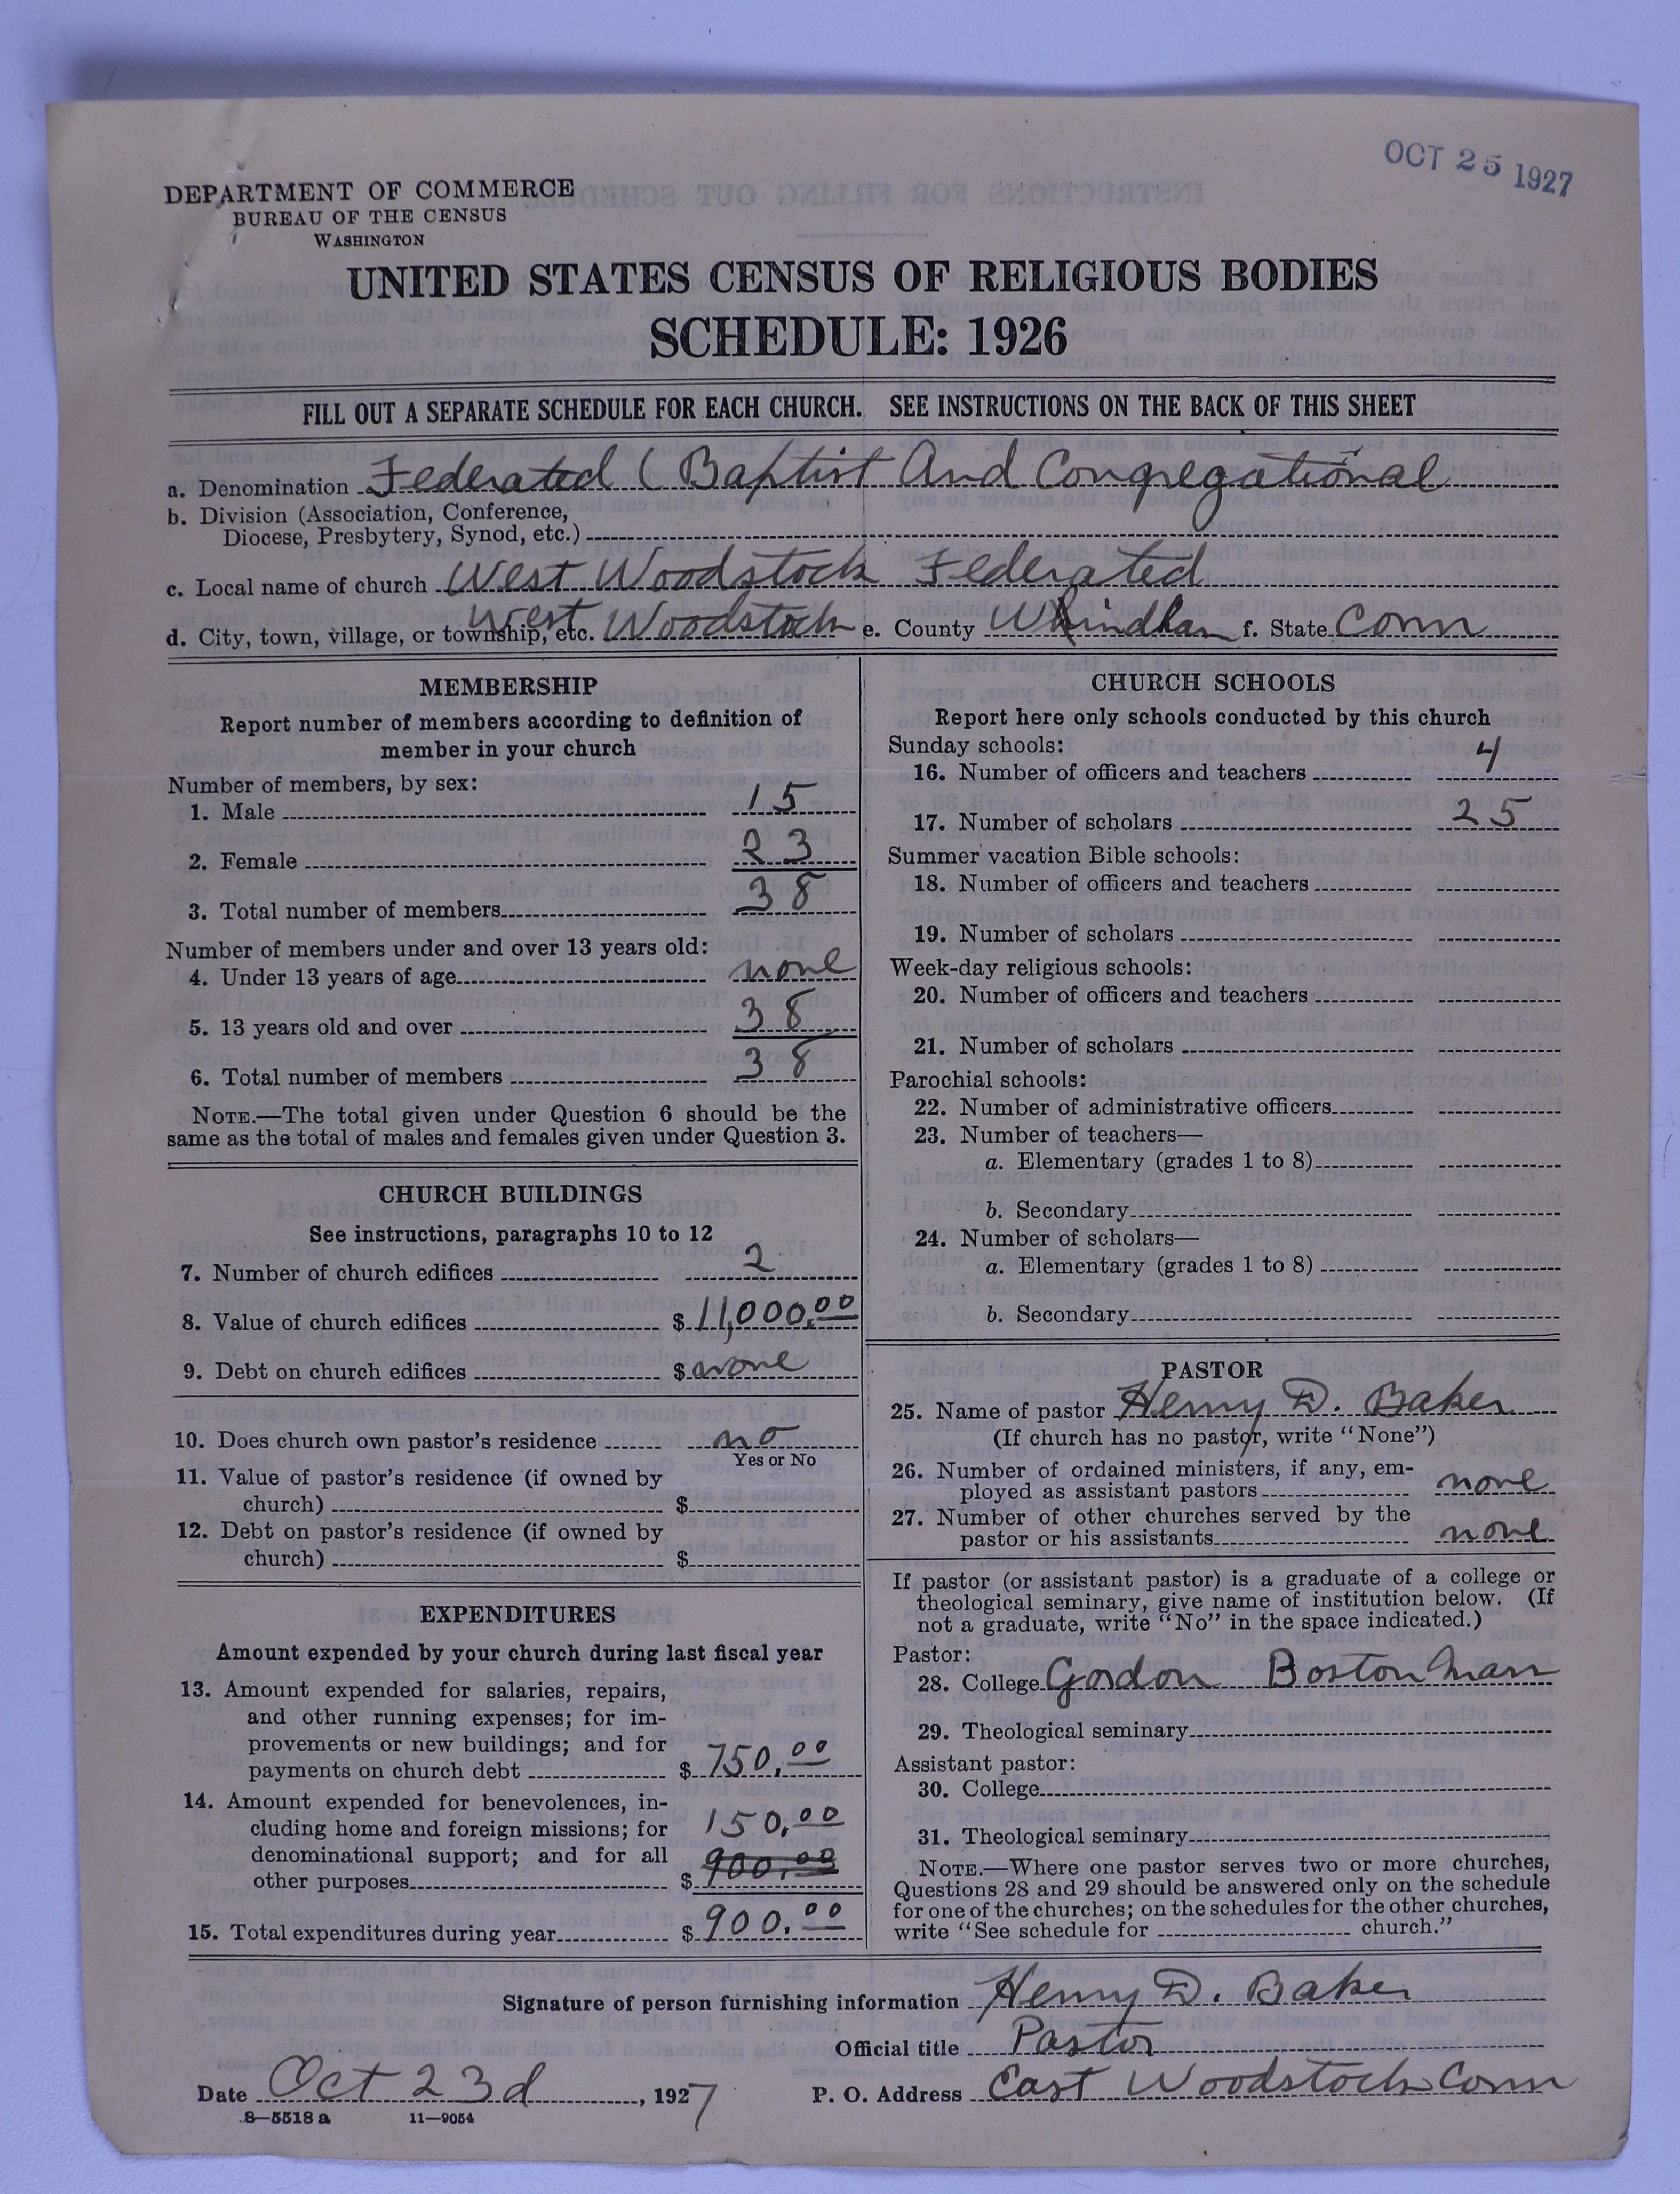 OCT 25 1927
DEPARTMENT OF COMMERCE
BUREAU OF THE CENSUS
WASHINGTON
UNITED STATES CENSUS OF RELIGIOUS BODIES
SCHEDULE: 1926
FILL OUT A SEPARATE SCHEDULE FOR EACH CHURCH. SEE INSTRUCTIONS ON THE BACK OF THIS SHEET
a. Denomination Federated ( Baptist And Congregational
b. Division (Association, Conference,
Diocese, Presbytery, Synod, etc.)
c. Local name of church West Woodstock Federated
d. City, town, village, or township, etc. West Woodstock e. County Windham f. State Conn
MEMBERSHIP
Report number of members according to definition of
member in your church
Number of members, by sex:
1. Male 15
2. Female 23
3. Total number of members 38
Number of members under and over 13 years old:
4. Under 13 years of age none
5. 13 years old and over 38
6. Total number of members 38
NOTE.—The total given under Question 6 should be the
same as the total of males and females given under Question 3.
CHURCH BUILDINGS
See instructions, paragraphs 10 to 12
7. Number of church edifices 2
8. Value of church edifices $ 11,000.00
9. Debt on church edifices $ none
10. Does church own pastor's residence no
Yes or No
11. Value of pastor's residence (if owned by
church) $
12. Debt on pastor's residence (if owned by
church) $
EXPENDITURES
Amount expended by your church during last fiscal year
13. Amount expended for salaries, repairs,
and other running expenses; for im-
provements or new buildings; and for
payments on church debt $ 750.00
14. Amount expended for benevolences, in-
cluding home and foreign missions; for 150.00
denominational support; and for all 900.00
other purposes $
15. Total expenditures during year $ 900.00
CHURCH SCHOOLS
Report here only schools conducted by this church
Sunday schools:
16. Number of officers and teachers 4
17. Number of scholars 25
Summer vacation Bible schools:
18. Number of officers and teachers
19. Number of scholars
Week-day religious schools:
20. Number of officers and teachers
21. Number of scholars
Parochial schools:
22. Number of administrative officers
23. Number of teachers—
a. Elementary (grades 1 to 8)
b. Secondary
24. Number of scholars—
a. Elementary (grades 1 to 8)
b. Secondary
PASTOR
25. Name of pastor Henry D. Baker
(If church has no pastor, write "None")
26. Number of ordained ministers, if any, em-
ployed as assistant pastors none
27. Number of other churches served by the
pastor or his assistants none
If pastor (or assistant pastor) is a graduate of a college or
theological seminary, give name of institution below. (If
not a graduate, write "No" in the space indicated.)
Pastor:
28. College Gordon Boston Mass
29. Theological seminary
Assistant pastor:
30. College
31. Theological seminary
NOTE.—Where one pastor serves two or more churches,
Questions 28 and 29 should be answered only on the schedule
for one of the churches; on the schedules for the other churches,
write "See schedule for church."
Signature of person furnishing information Henry D. Baker
Official title Pastor
Date Oct 23d, 1927 P. O. Address East Woodstock Conn
8—5518 a 11—9054